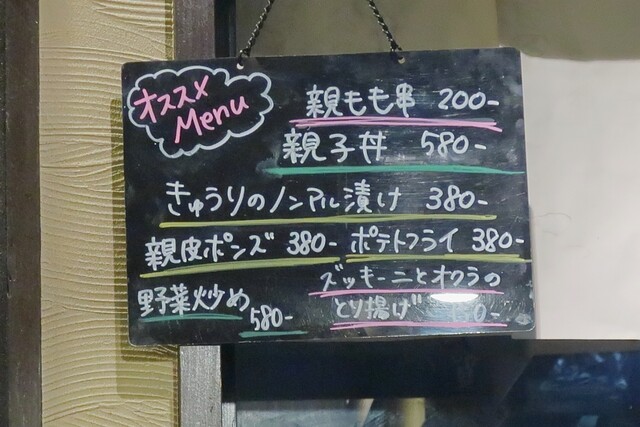 オススメ
Menu
親もも串 200-
親子丼 580-
きゅうりのノンアル漬け 380-
親皮ポンズ 380- ポテトフライ 380-
野菜炒め 580-
ズッキーニとオクラの
とり揚げ